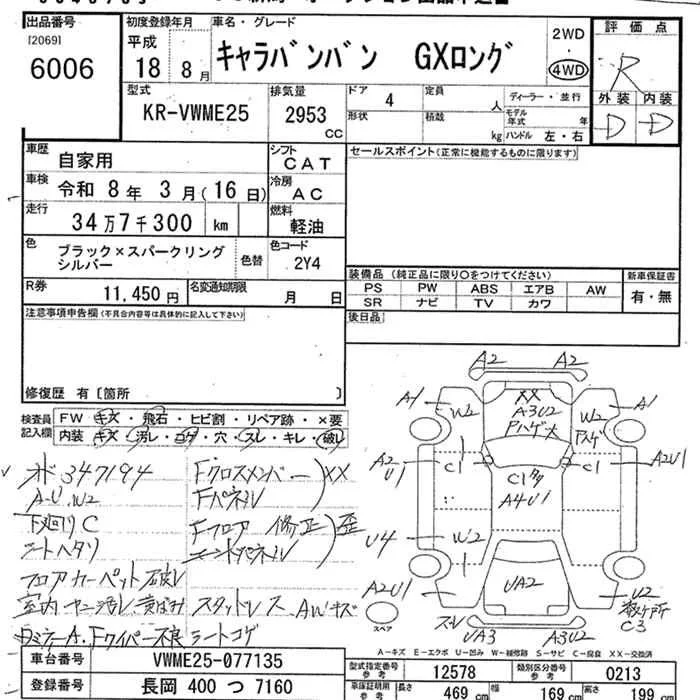 出品番号
[2069]
6006
初度登録年月
平成
18 8月
車名・グレード
キャラバンバン GXロング
2WD
・
4WD
評価点
R
外装 内装
D D
型式
KR-VWME25
排気量
2953
CC
ドア 4
定員 人
形状
積載 kg
ディーラー・並行
モデル年式 年
ハンドル 左・右
車歴 自家用
シフト CAT
セールスポイント(正常に機能するものに限ります)
車検 令和 8年 3月(16日)
冷房 AC
走行 34万7千300 km
燃料 軽油
色 ブラック×スパークリング
シルバー
色替
色コード 2Y4
R券 11,450円
名変通知期限 月 日
装備品 (純正品に限り○をつけてください)
PS PW ABS エアB AW
SR ナビ TV カワ
新車保証書
有・無
後日品
注意事項申告欄(不具合内容等は具体的に記入して下さい)
修復歴 有〔箇所 〕
検査員
記入欄
FW キズ・飛石・ヒビ割・リペア跡・×要
内装 キズ・汚レ・コゲ・穴・スレ・キレ・破レ
メ 347194
A-U.W2
下廻りC
シートヘタリ
フロアカーペット破レ
Fクロスメンバー XX
Fパネル
Fフロア 修正 歪
スタッドレス AWキズ
Fワイパー不良 シートコゲ
A2 A2
A1 W2 XX W2 A1
A3U2
A2 U1 C1 C1 A2U1
A4U1
U4 W2
A2U1 UA2 U2
C3
UA3 A3U2
スペア
A-キズ E-エクボ U-凹み W-補修跡 S-サビ C-腐食 XX-交換済
車台番号 VWME25-077135
型式指定番号
参考
12578
類別区分番号
参考
0213
登録番号 長岡 400 つ 7160
車庫証明用
参考
長さ 469 cm
幅 169 cm
高さ 199 cm